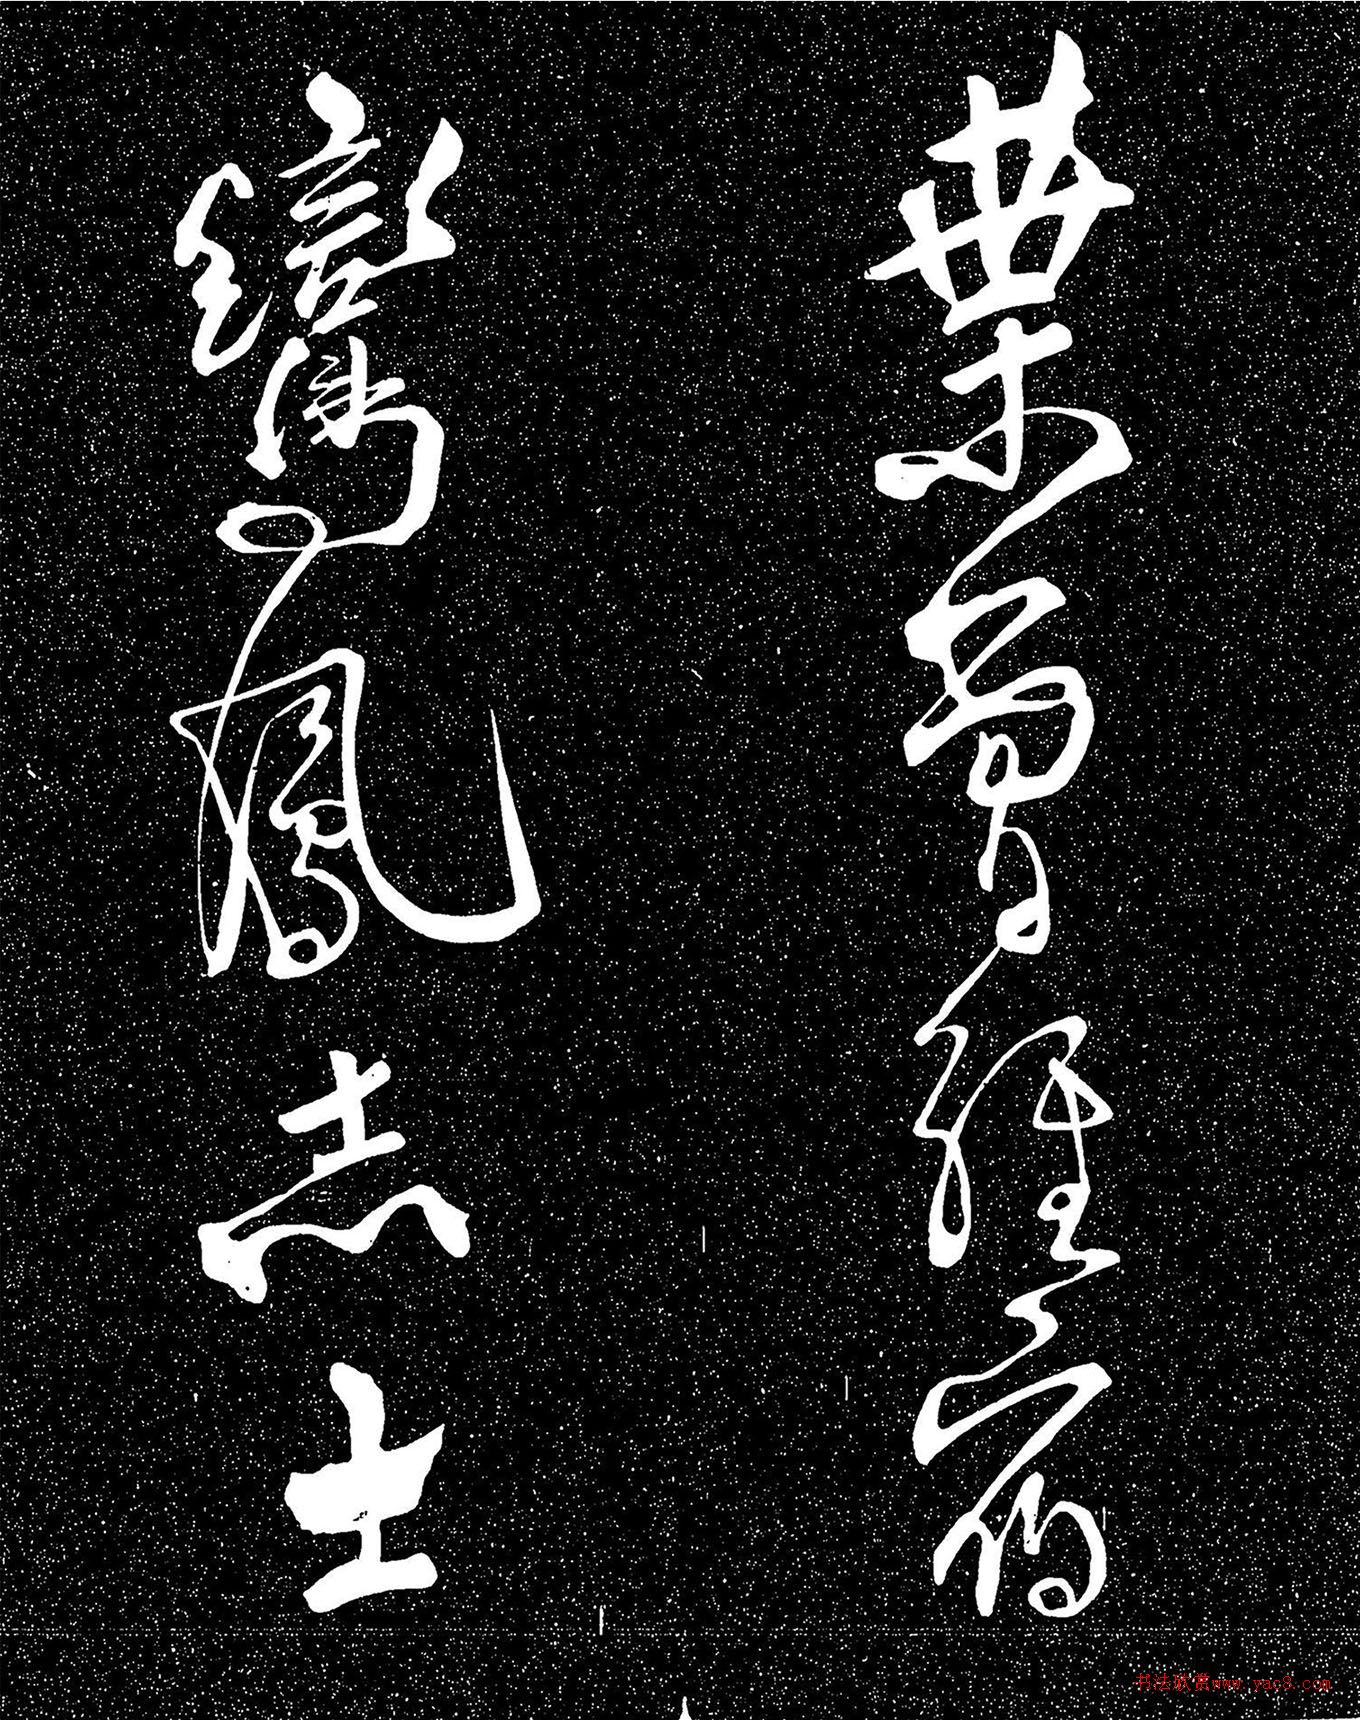 葉曾經宿
鸞鳳志士
书法欣赏www.yac8.com